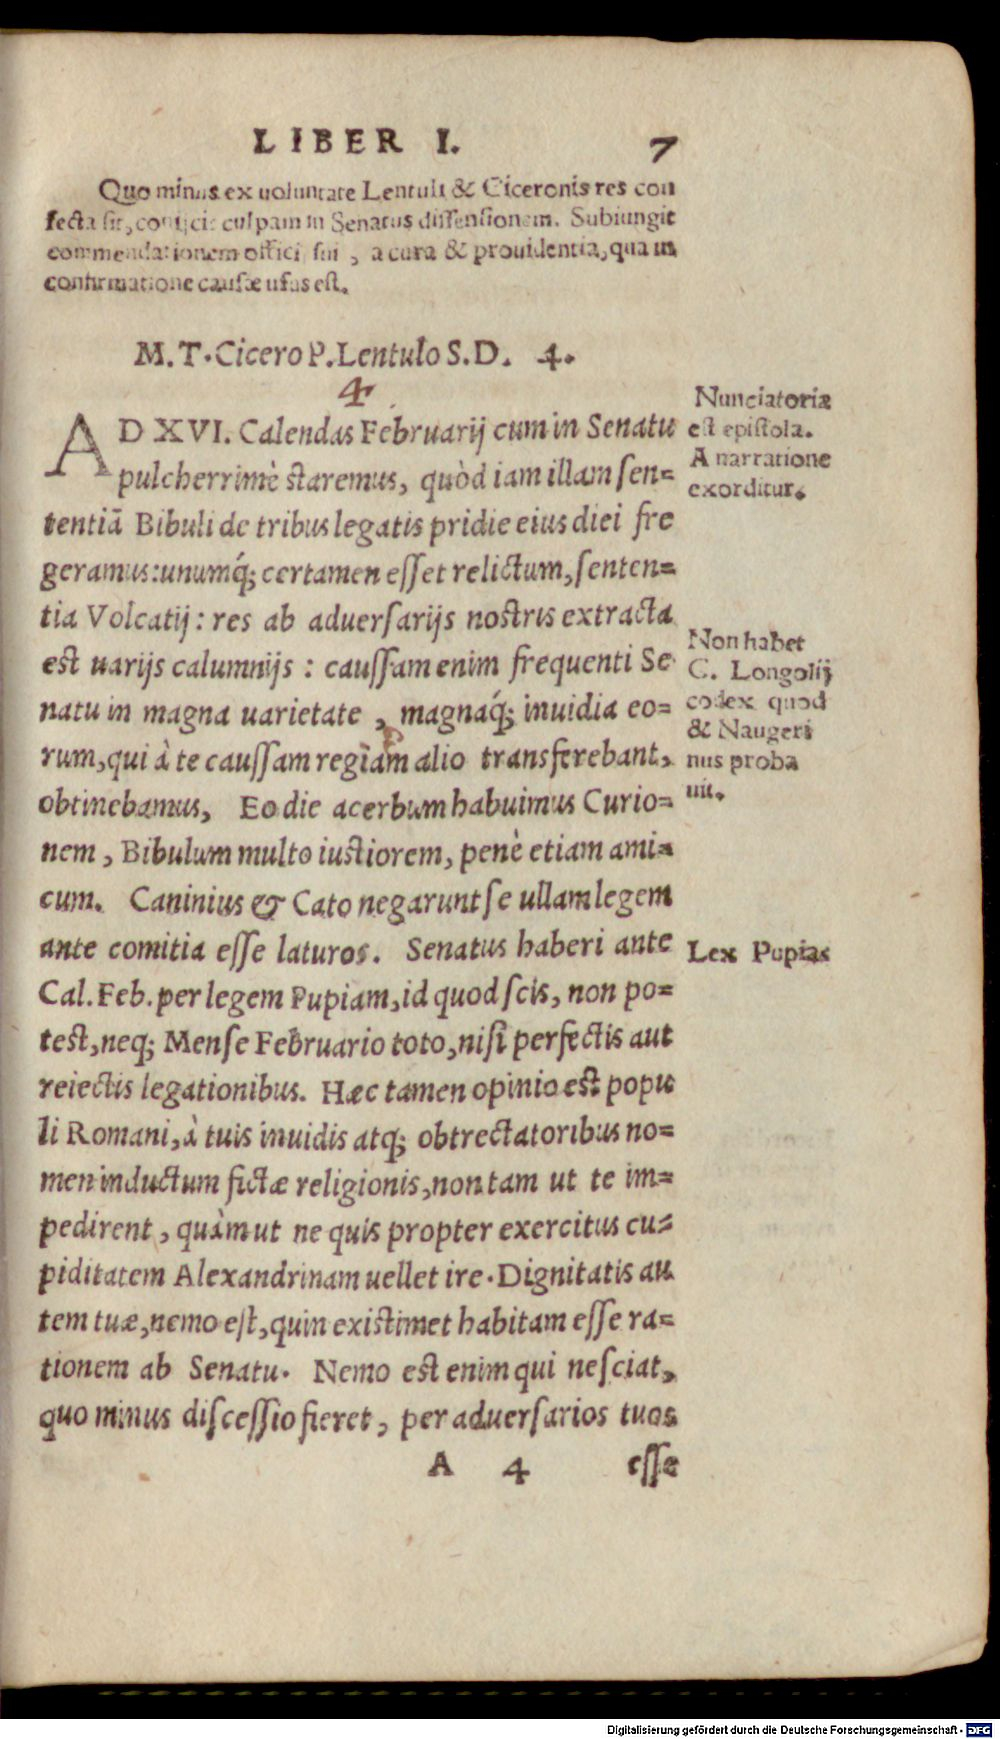 LIBER I. 7
Quo minus ex uoluntate Lentuli & Ciceronis res con
fecta sit, conijcit culpam in Senatus dissensionem. Subiungit
commendationem officij sui, a cura & prouidentia, qua in
confirmatione causæ usus est.
M. T. Cicero P. Lentulo S. D. 4.
4
AD XVI. Calendas Februarij cum in Senatu
pulcherrimè staremus, quòd iam illam sen=
tentiã Bibuli de tribus legatis pridie eius diei fre
geramus: unumq́; certamen esset relictum, senten=
tia Volcatij: res ab aduersarijs nostris extracta
est uarijs calumnijs: caussam enim frequenti Se
natu in magna uarietate, magnaq́; inuidia eo=
rum, qui à te caussam regiam alio transferebant,
obtinebamus, Eo die acerbum habuimus Curio=
nem, Bibulum multo iustiorem, penè etiam ami=
cum. Caninius & Cato negarunt se ullam legem
ante comitia esse laturos. Senatus haberi ante
Cal. Feb. per legem Pupiam, id quod scis, non po=
test, neq; Mense Februario toto, nisi perfectis aut
reiectis legationibus. Hæc tamen opinio est popu
li Romani, à tuis inuidis atq; obtrectatoribus no=
men inductum fictæ religionis, non tam ut te im=
pedirent, quàm ut ne quis propter exercitus cu=
piditatem Alexandrinam uellet ire. Dignitatis au
tem tuæ, nemo est, quin existimet habitam esse ra=
tionem ab Senatu. Nemo est enim qui nesciat,
quo minus discessio fieret, per aduersarios tuos
A 4 esse
Nunciatoria
est epistola.
A narratione
exorditur.
Non habet
C. Longolij
codex quod
& Naugeri
nus proba
uit.
Lex Pupias
Digitalisierung gefördert durch die Deutsche Forschungsgemeinschaft - DFG